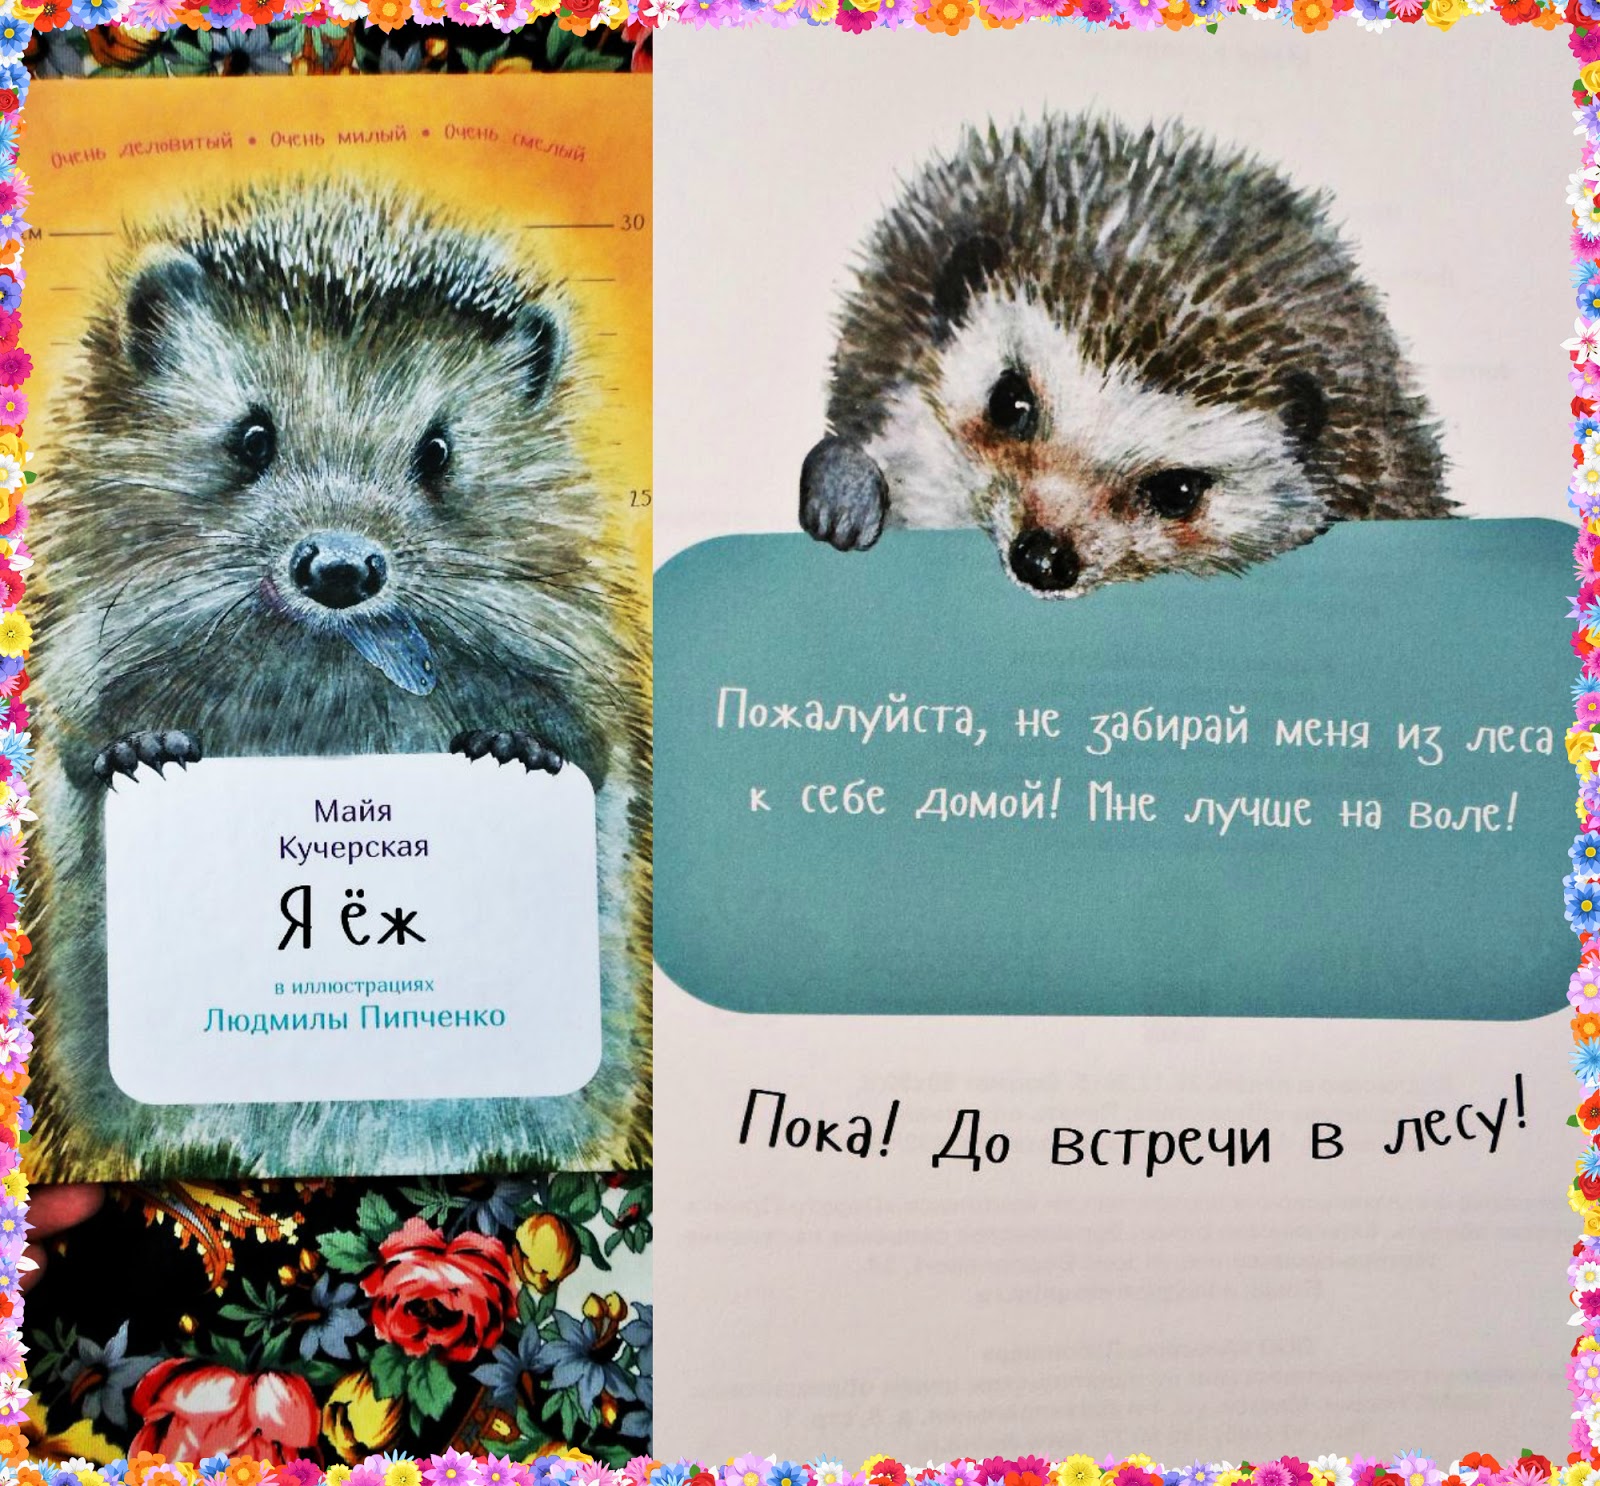 Очень деловитый • Очень милый • Очень смелый
см 30
25
Майя
Кучерская
Я ёж
в иллюстрациях
Людмилы Пипченко
Пожалуйста, не забирай меня из леса
к себе домой! Мне лучше на воле!
Пока! До встречи в лесу!